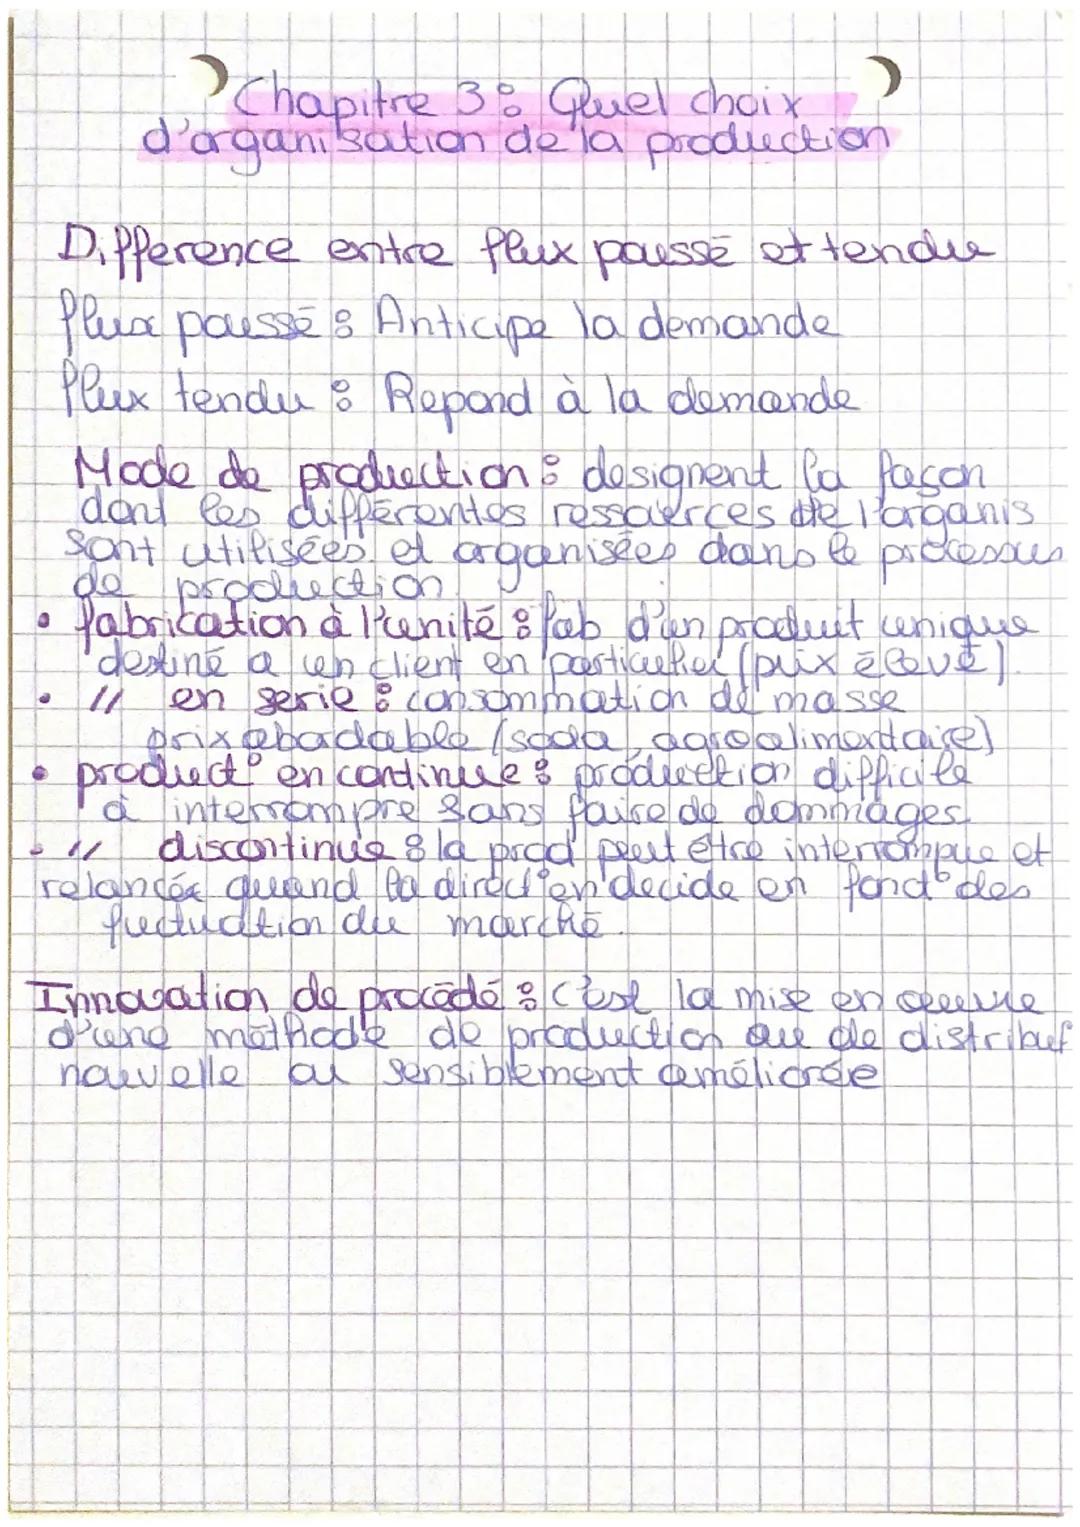 Chapitre 3 : Quel choix
d'organisation de la production
Difference entre flux poussé et tendu
flux poussé : Anticipe la demande
flux tendu : Repond à la demande
Mode de production : designent la façon
dont les différentes ressources de l'organis
sont utilisées et organisées dans le processus
de production
• fabrication à l'unité : fab d'un produit unique
destiné a un client en particulier (prix élevé).
• // en serie : consommation de masse
prix abordable (soda, agroalimentaire)
• product° en continue : production difficile
à interrompre sans faire de dommages.
• // discontinue : la prod peut être interrompue et
relancée quand la direct° en decide en fonct° des
fluctuation du marché.
Innovation de procédé : c'est la mise en œuvre
d'une méthode de production ou de distribut
nouvelle ou sensiblement améliorée